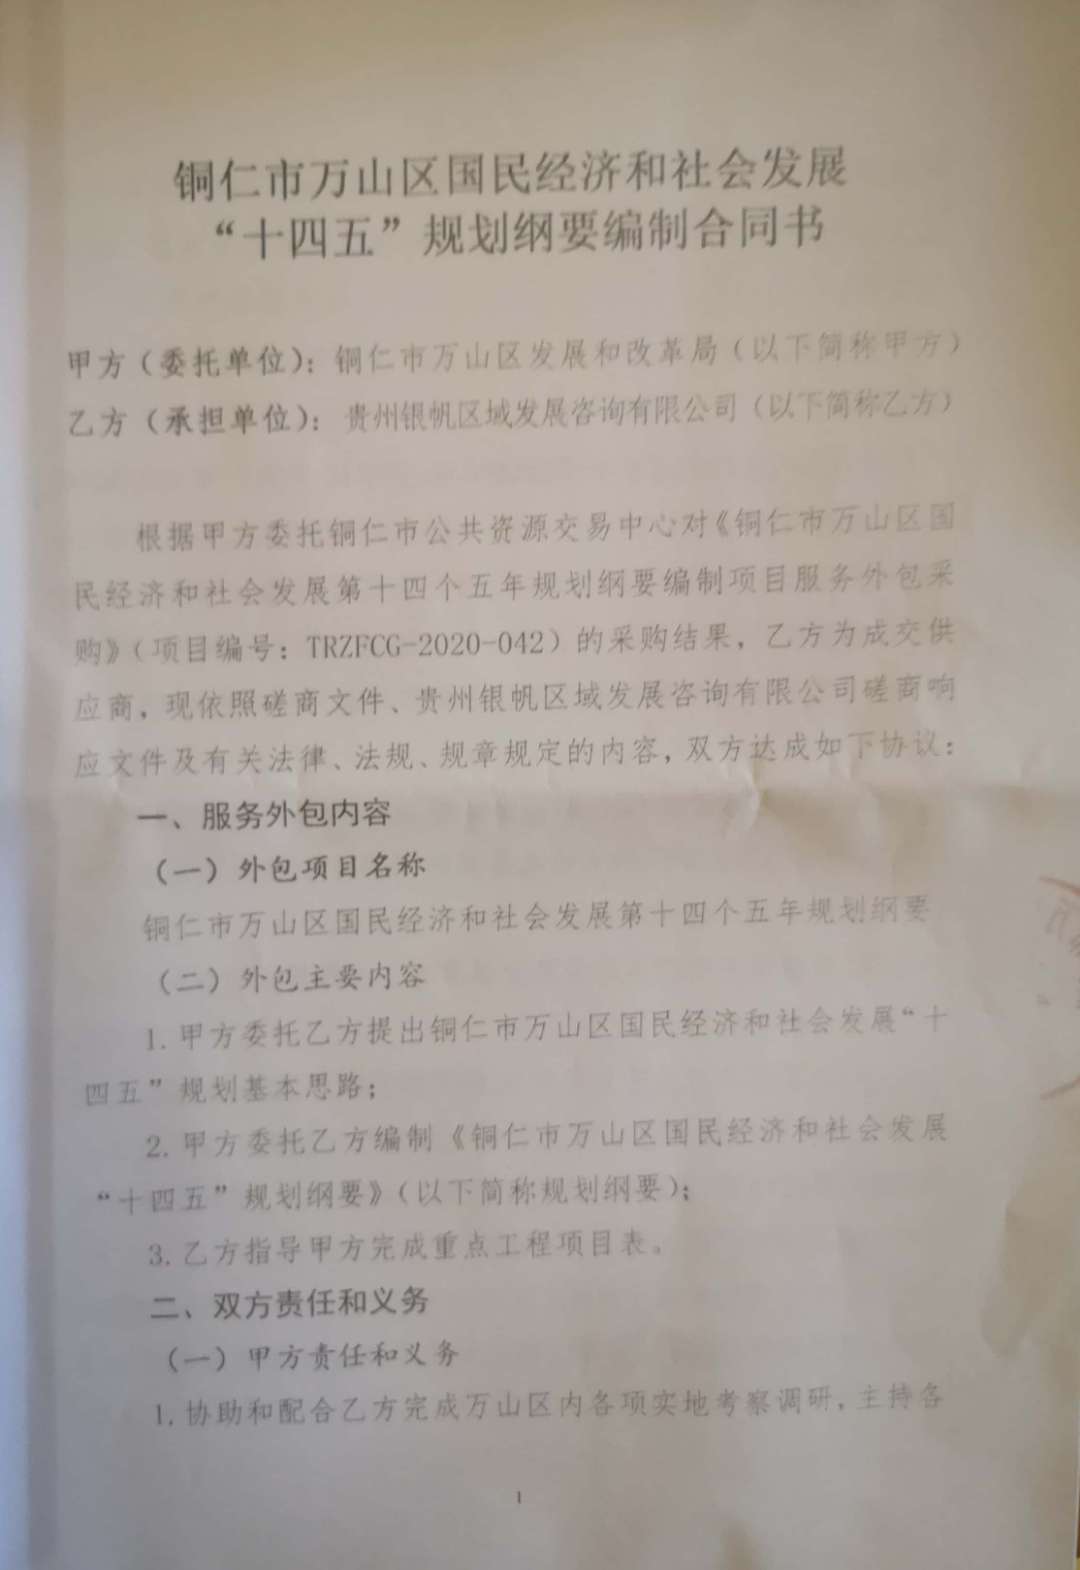 铜仁市万山区国民经济和社会发展
“十四五”规划纲要编制合同书
甲方（委托单位）：铜仁市万山区发展和改革局（以下简称甲方）
乙方（承担单位）：贵州银帆区域发展咨询有限公司（以下简称乙方）
根据甲方委托铜仁市公共资源交易中心对《铜仁市万山区国
民经济和社会发展第十四个五年规划纲要编制项目服务外包采
购》（项目编号：TRZFCG-2020-042）的采购结果，乙方为成交供
应商，现依照磋商文件、贵州银帆区域发展咨询有限公司磋商响
应文件及有关法律、法规、规章规定的内容，双方达成如下协议：
一、服务外包内容
（一）外包项目名称
铜仁市万山区国民经济和社会发展第十四个五年规划纲要
（二）外包主要内容
1. 甲方委托乙方提出铜仁市万山区国民经济和社会发展“十
四五”规划基本思路；
2. 甲方委托乙方编制《铜仁市万山区国民经济和社会发展
“十四五”规划纲要》（以下简称规划纲要）；
3. 乙方指导甲方完成重点工程项目表。
二、双方责任和义务
（一）甲方责任和义务
1. 协助和配合乙方完成万山区内各项实地考察调研，主持各
1